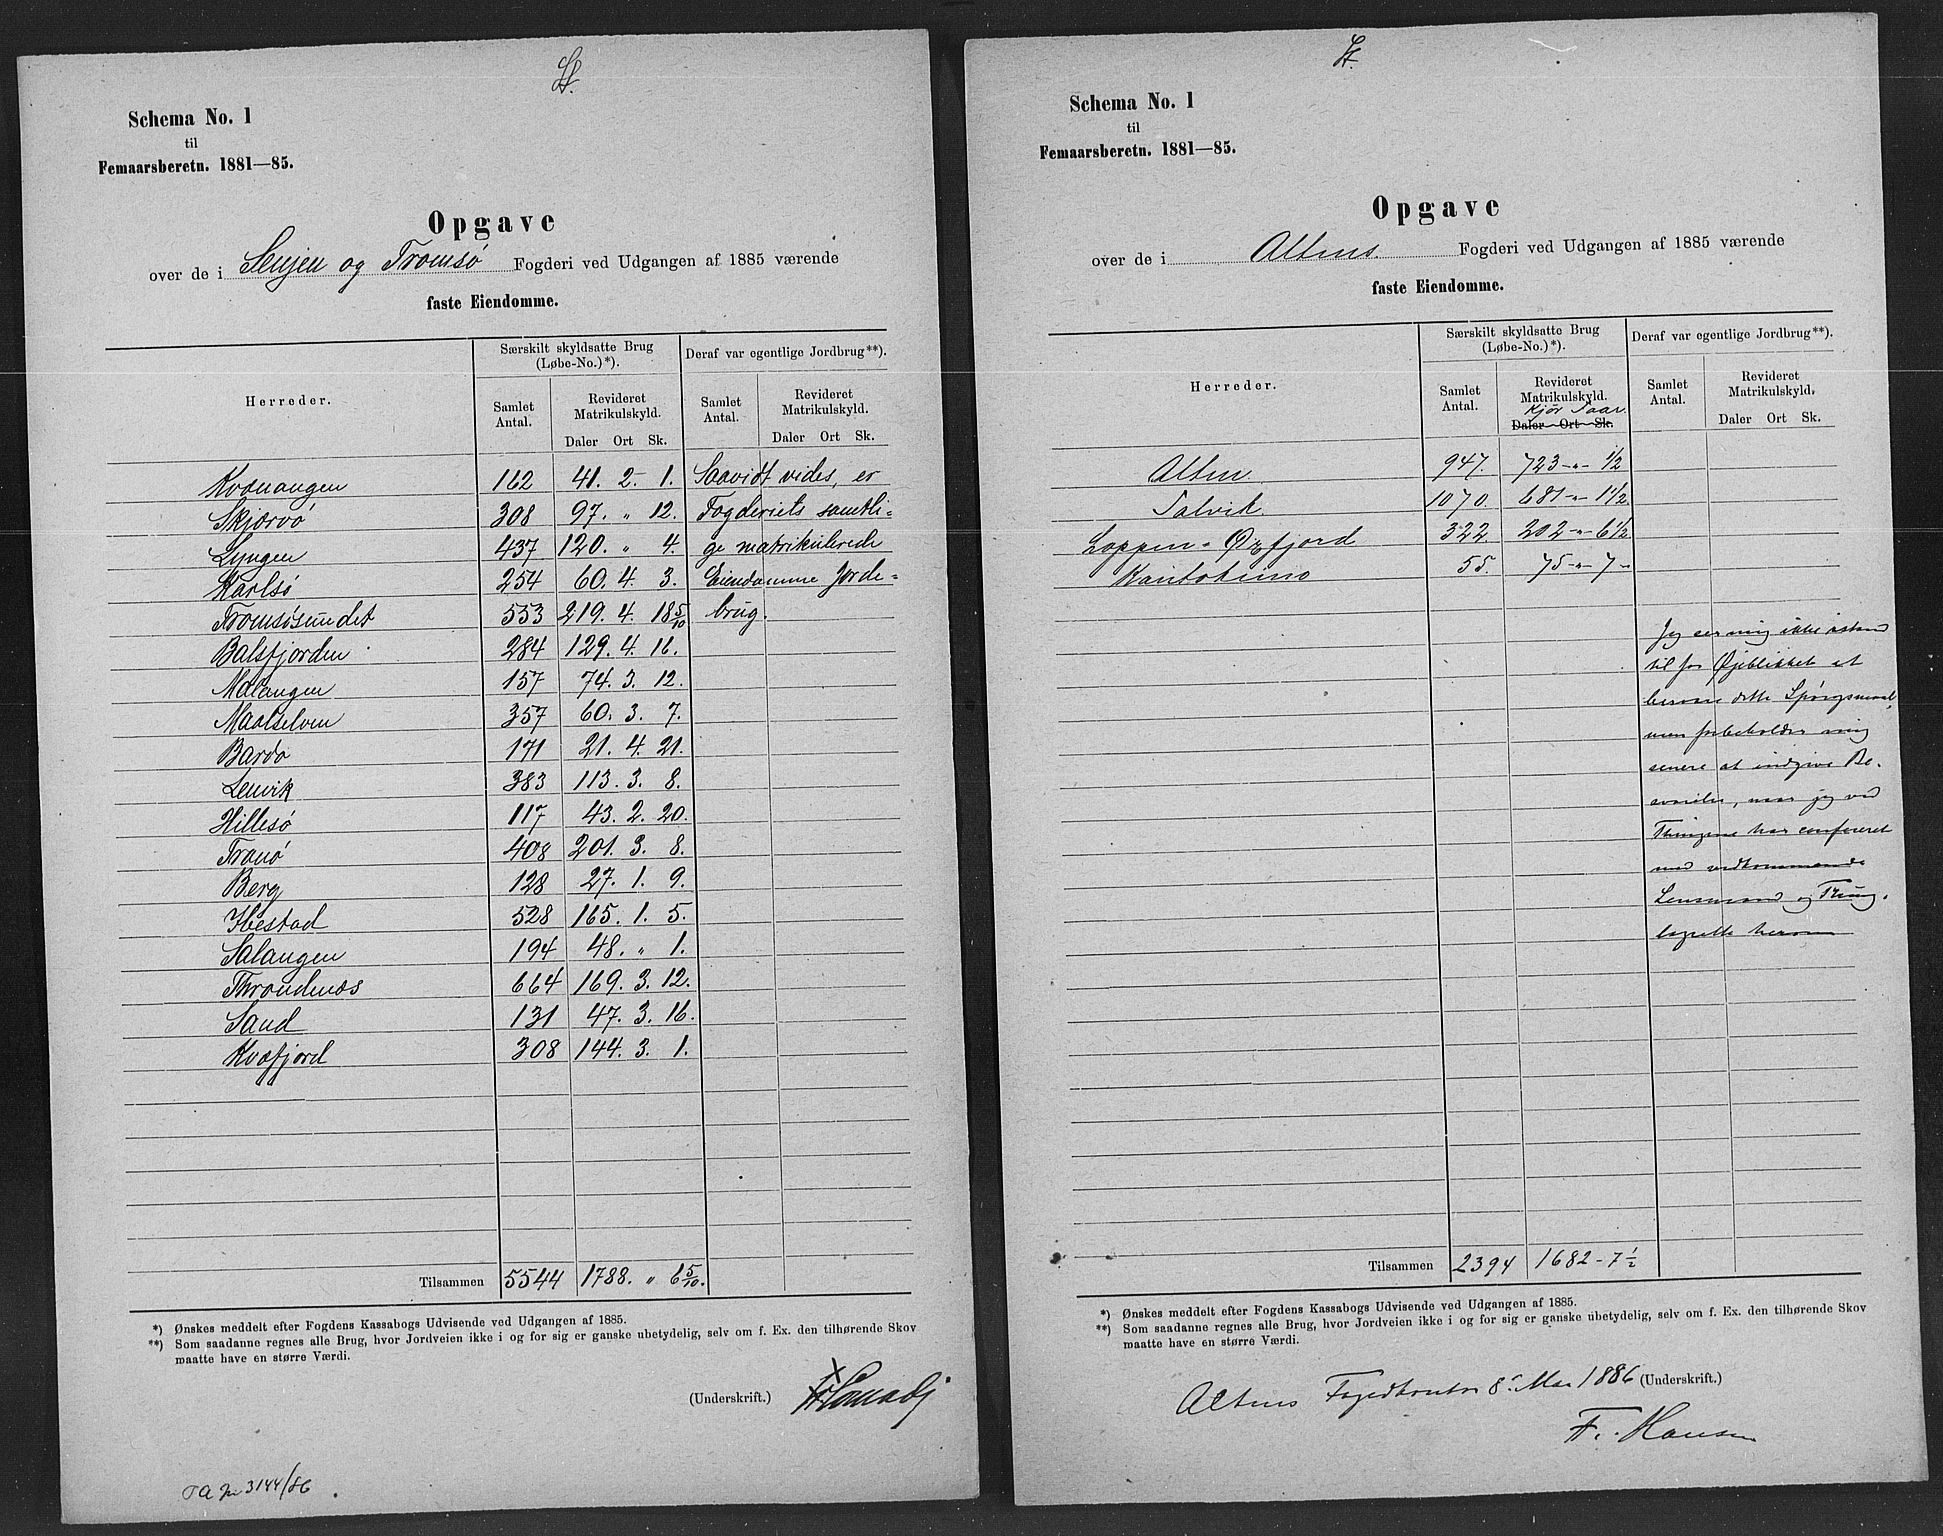 Schema No. 1
til
Femaarsberetn. 1881—85.
Opgave
over de i Senjen og Tromsø Fogderi ved Udgangen af 1885 værende
faste Eiendomme.
Herreder.
Særskilt skyldsatte Brug (Løbe-No.)*).
Deraf var egentlige Jordbrug**).
Samlet Antal.
Revideret Matrikulskyld.
Daler Ort Sk.
Samlet Antal.
Revideret Matrikulskyld.
Daler Ort Sk.
Kvænangen 162 41. 2. 1. Saavidt vides, er
Skjærvø 308 97. " 12. Fogderiets samtli-
Lyngen 437 120. " 4. ge matrikulerede
Karlsø 254 60. 4. 3. Eiendomme Jorde-
Tromsøsundet 553 219. 4. 18 5/10 brug.
Balsfjorden 284 129. 4. 16.
Malangen 157 74. 3. 12.
Maalselven 357 60. 3. 7.
Bardo 171 21. 4. 21.
Lenvik 383 113. 3. 8.
Hillesø 117 43. 2. 20.
Tranø 408 201. 3. 8.
Berg 128 27. 1. 9.
Ibestad 528 165. 1. 5.
Salangen 194 48. " 1.
Throndenæs 664 169. 3. 12.
Sand 131 47. 3. 16.
Kvæfjord 308 144. 3. 1.
Tilsammen 5544 1788. " 6 5/10.
*) Ønskes meddelt efter Fogdens Kassabogs Udvisende ved Udgangen af 1885.
**) Som saadanne regnes alle Brug, hvor Jordveien ikke i og for sig er ganske ubetydelig, selv om f. Ex. den tilhørende Skov
maatte have en større Værdi.
(Underskrift.)
3144/86
Schema No. 1
til
Femaarsberetn. 1881—85.
Opgave
over de i Altens Fogderi ved Udgangen af 1885 værende
faste Eiendomme.
Herreder.
Særskilt skyldsatte Brug (Løbe-No.)*).
Deraf var egentlige Jordbrug**).
Samlet Antal.
Revideret Matrikulskyld.
Daler Ort Sk.
Samlet Antal.
Revideret Matrikulskyld.
Daler Ort Sk.
Alten 947. 723 - " - 1/2
Talvik 1070. 681 - " - 1 1/2
Loppen - Øxfjord 322 202 - " - 6 1/2
Kautokeino 55. 75 - " - 7 -
Jeg ser mig ikke istand
til for Øjeblikket at
besvare dette Spørgsmaal,
men forbeholder mig
senere at indgive Be-
svarelse, naar jeg ved
Thingene har confereret
med vedkommende
Lensmand og Thing-
lagrette herom
Tilsammen 2394 1682 - 7 1/2
*) Ønskes meddelt efter Fogdens Kassabogs Udvisende ved Udgangen af 1885.
**) Som saadanne regnes alle Brug, hvor Jordveien ikke i og for sig er ganske ubetydelig, selv om f. Ex. den tilhørende Skov
maatte have en større Værdi.
Altens Fogedkontor 8. Mai 1886 (Underskrift.)
F. Hansen